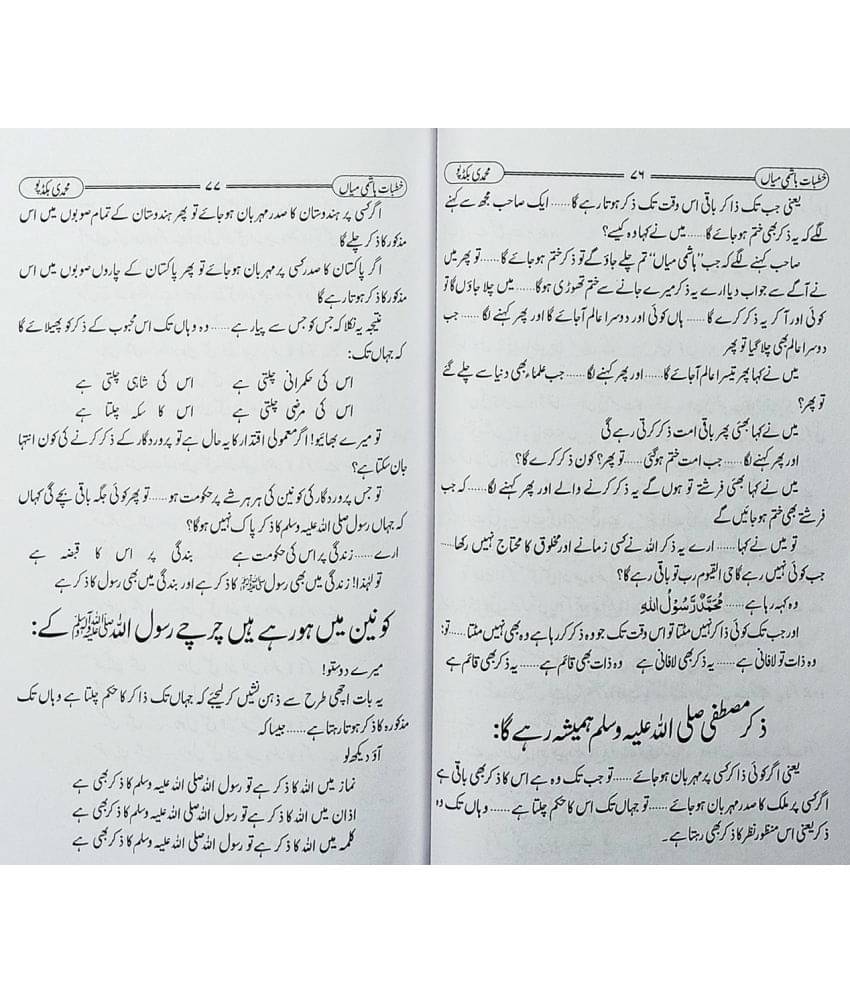 خطبات ہاشمی میاں ۷۶ محمدی بکڈپو
یعنی جب تک ذاکر باقی اس وقت تک ذکر ہوتا رہے گا...... ایک صاحب مجھ سے کہنے
لگے کہ یہ ذکر بھی ختم ہو جائے گا...... میں نے کہا وہ کیسے؟
صاحب کہنے لگے کہ جب "ہاشمی میاں" تم چلے جاؤ گے تو ذکر ختم ہو جائے گا...... تو پھر میں
نے آگے سے جواب دیا ارے یہ ذکر میرے جانے سے ختم تھوڑی ہوگا...... میں چلا جاؤں گا تو
کوئی اور آ کر یہ ذکر کرے گا...... ہاں کوئی اور دوسرا عالم آجائے گا اور پھر کہنے لگا...... جب
دوسرا عالم بھی چلا گیا تو پھر
میں نے کہا پھر تیسرا عالم آجائے گا...... اور پھر کہنے لگا...... جب علماء بھی دنیا سے چلے گئے
تو پھر؟
میں نے کہا بھئی پھر باقی امت ذکر کرتی رہے گی
اور پھر کہنے لگا...... جب امت ختم ہوگئی...... تو پھر؟ کون ذکر کرے گا؟
میں نے کہا بھئی فرشتے تو ہوں گے یہ ذکر کرنے والے اور پھر کہنے لگا...... کہ جب
فرشتے بھی ختم ہو جائیں گے
تو میں نے کہا...... ارے یہ ذکر اللہ نے کسی زمانے اور مخلوق کا محتاج نہیں رکھا......
جب کوئی نہیں رہے گا حی القیوم رب تو باقی رہے گا؟
وہ کہہ رہا ہے...... مُحَمَّدٌ رَّسُوْلُ اللهِ
اور جب تک کوئی ذاکر نہیں مٹتا تو اس وقت تک جو وہ ذکر کر رہا ہے وہ بھی نہیں مٹتا...... تو:
وہ ذات تو لافانی ہے...... یہ ذکر بھی لافانی ہے وہ ذات بھی قائم ہے...... یہ ذکر بھی قائم ہے
ذکر مصطفی صلی اللہ علیہ وسلم ہمیشہ رہے گا:
یعنی اگر کوئی ذاکر کسی پر مہربان ہو جائے...... تو جب تک وہ ہے اس کا ذکر بھی باقی ہے
اگر کسی پر ملک کا صدر مہربان ہو جائے...... تو جہاں تک اس کا حکم چلتا ہے...... وہاں تک وہ
ذکر یعنی اس منظور نظر کا ذکر بھی رہتا ہے۔
خطبات ہاشمی میاں ۷۷ محمدی بکڈپو
اگر کسی پر ہندوستان کا صدر مہربان ہو جائے تو پھر ہندوستان کے تمام صوبوں میں اس
مذکور کا ذکر چلے گا
اگر پاکستان کا صدر کسی پر مہربان ہو جائے تو پھر پاکستان کے چاروں صوبوں میں اس
مذکور کا ذکر ہوتا رہے گا
نتیجہ یہ نکلا کہ جس کو جس سے پیار ہے...... وہ وہاں تک اس محبوب کے ذکر کو پھیلائے گا
کہ جہاں تک:
اس کی حکمرانی چلتی ہے اس کی شاہی چلتی ہے
اس کی مرضی چلتی ہے اس کا سکہ چلتا ہے
تو میرے بھائیو! اگر معمولی اقتدار کا یہ حال ہے تو پروردگار کے ذکر کرنے کی کون انتہا
جان سکتا ہے؟
تو جس پروردگار کی کونین کی ہر ہر شے پر حکومت ہو...... تو پھر کوئی جگہ باقی بچے گی کہاں
کہ جہاں رسول صلی اللہ علیہ وسلم کا ذکر پاک نہیں ہوگا؟
ارے...... زندگی پر اس کی حکومت ہے بندگی پر اس کا قبضہ ہے
تو لہٰذا! زندگی میں بھی رسول ﷺ کا ذکر ہے اور بندگی میں بھی رسول کا ذکر ہے
کونین میں ہو رہے ہیں چرچے رسول اللہ ﷺ کے:
میرے دوستو!
یہ بات اچھی طرح سے ذہن نشیں کر لیجئے کہ جہاں تک ذاکر کا حکم چلتا ہے وہاں تک
مذکورہ کا ذکر ہوتا رہتا ہے...... جیسا کہ
آؤ دیکھ لو
نماز میں اللہ کا ذکر ہے تو رسول اللہ صلی اللہ علیہ وسلم کا ذکر بھی ہے
اذان میں اللہ کا ذکر ہے تو رسول اللہ صلی اللہ علیہ وسلم کا ذکر بھی ہے
کلمہ میں اللہ کا ذکر ہے تو رسول اللہ صلی اللہ علیہ وسلم کا ذکر بھی ہے